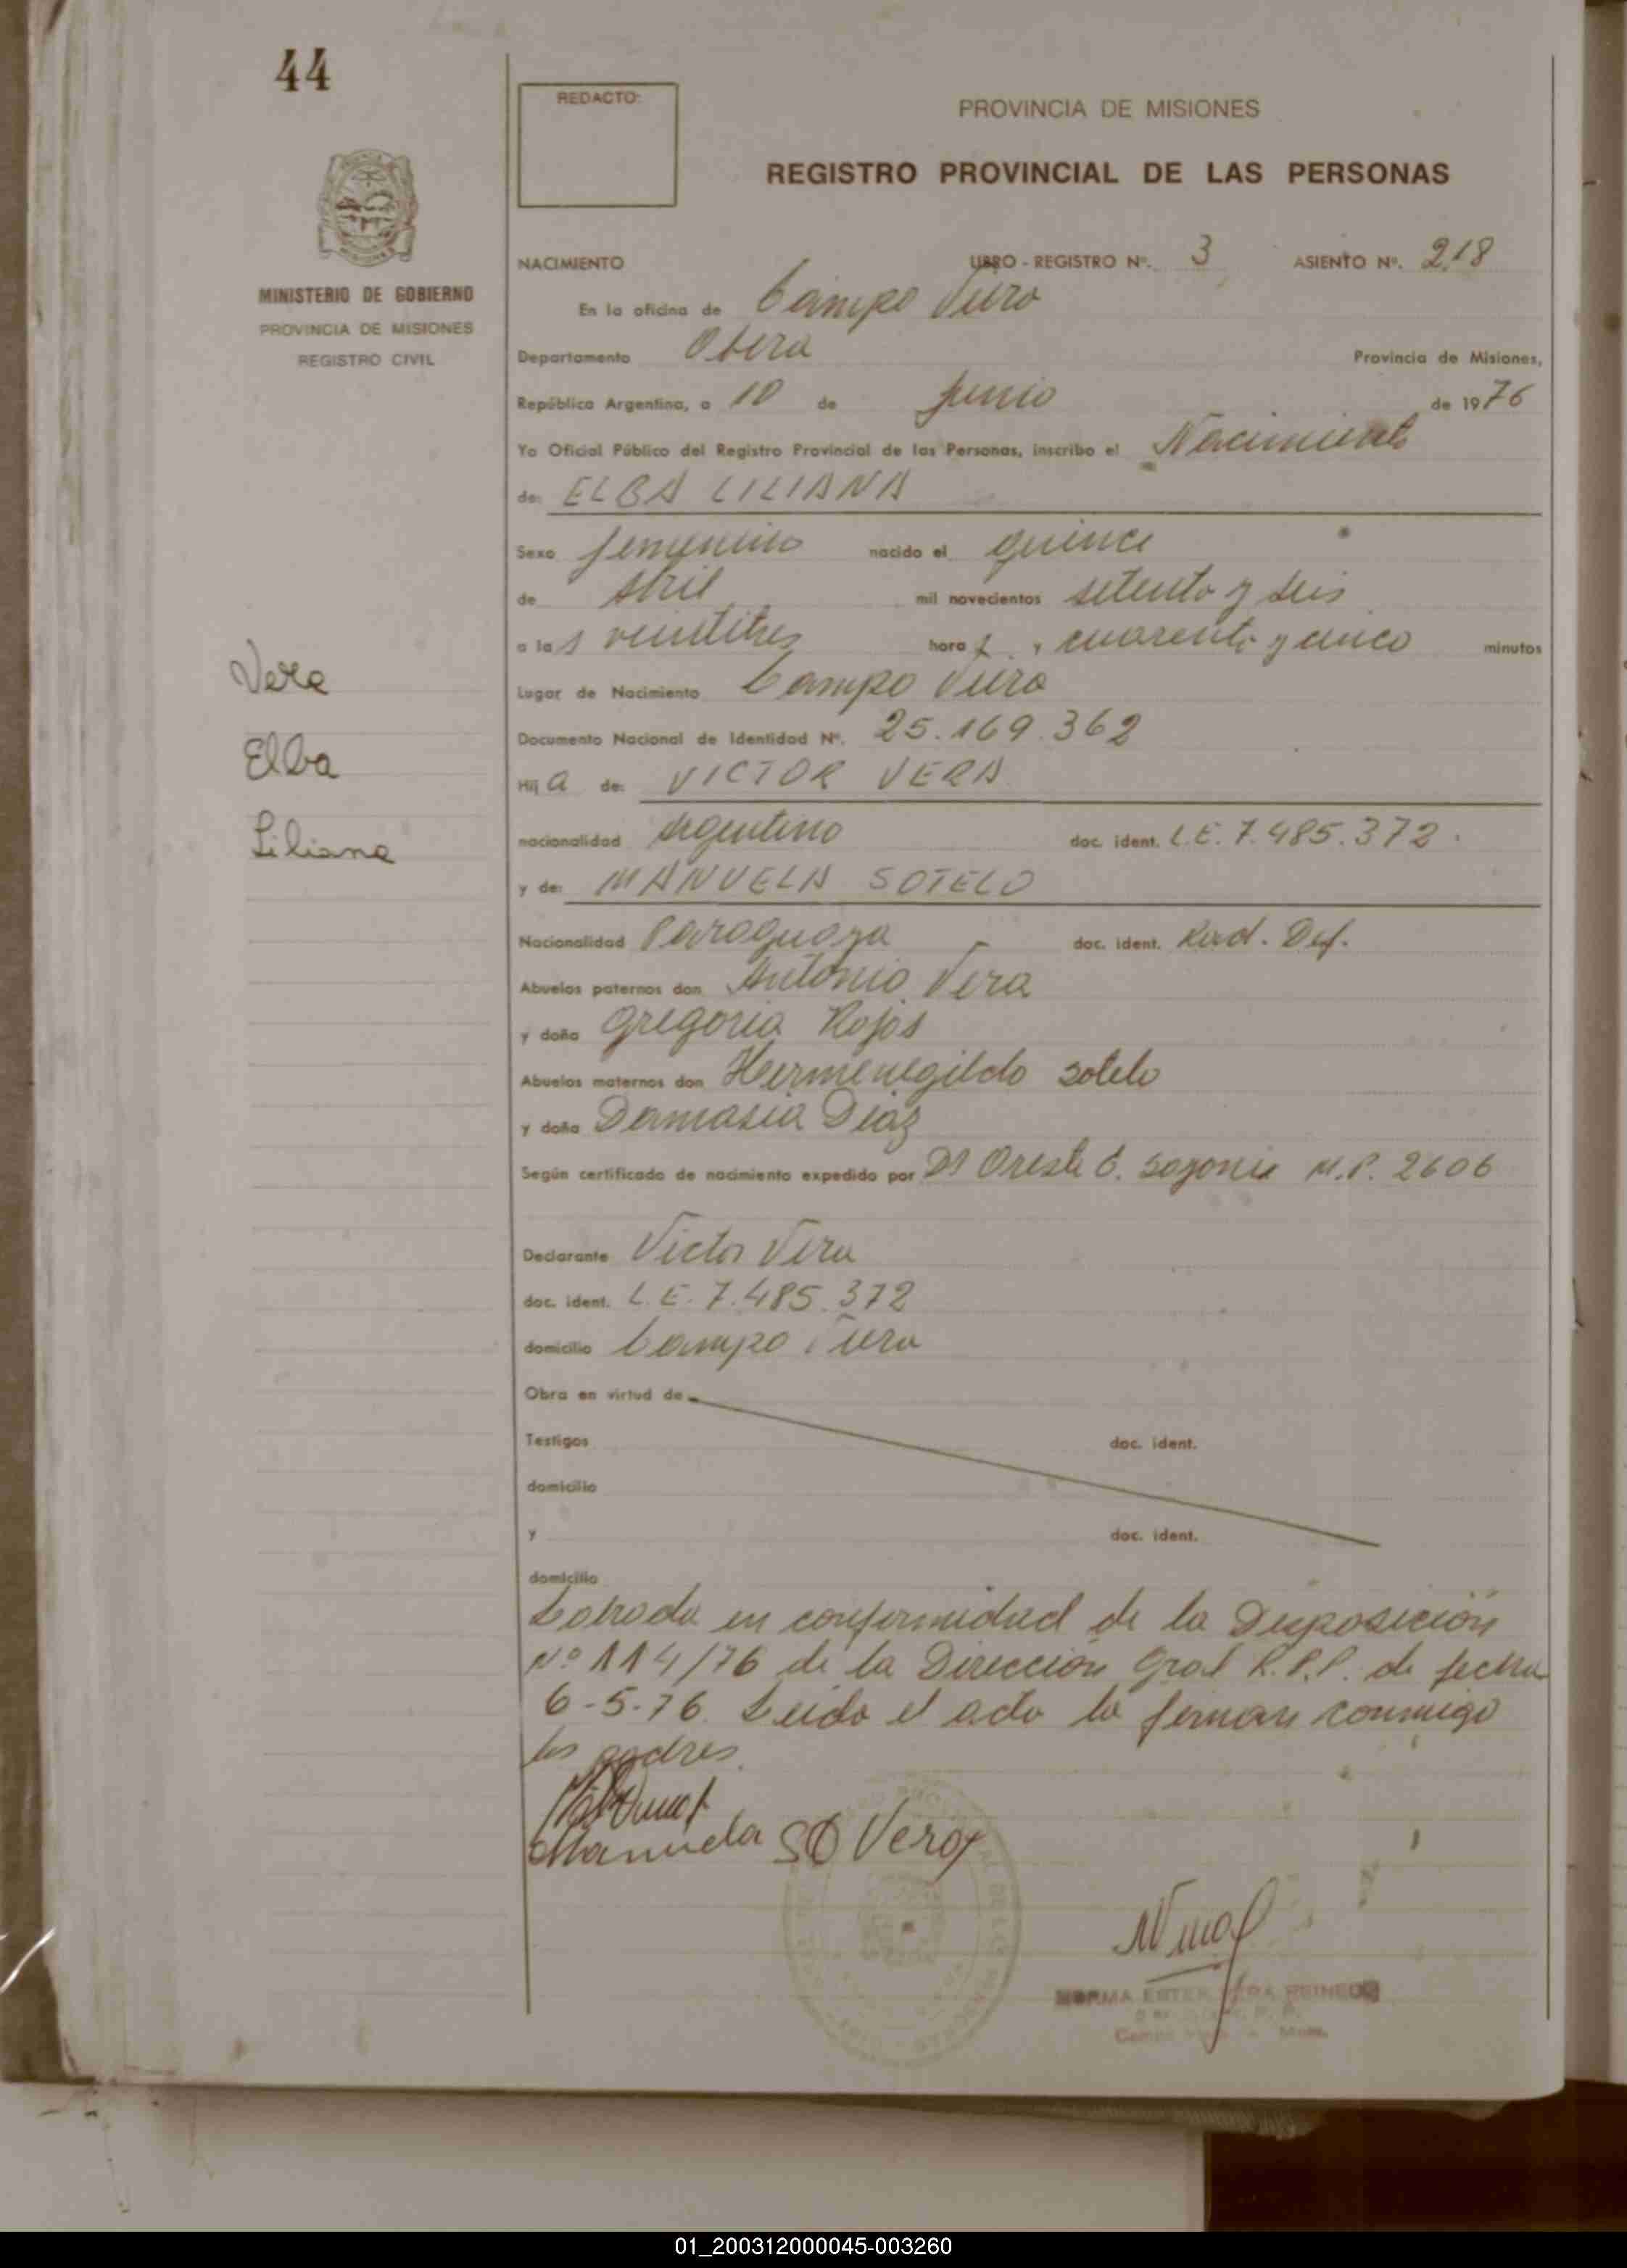 44
REDACTO:
PROVINCIA DE MISIONES
REGISTRO PROVINCIAL DE LAS PERSONAS
MINISTERIO DE GOBIERNO
PROVINCIA DE MISIONES
REGISTRO CIVIL
NACIMIENTO LIBRO - REGISTRO Nº. 3 ASIENTO Nº. 218
En la oficina de Campo Viera
Departamento Obera Provincia de Misiones,
República Argentina, a 10 de Junio de 1976
Yo Oficial Público del Registro Provincial de las Personas, inscribo el Nacimiento
de: ELBA LILIANA
Sexo femenino nacido el quince
de Abril mil novecientos setenta y seis
a las veintitres horas y cuarenta y cinco minutos
Lugar de Nacimiento Campo Viera
Documento Nacional de Identidad Nº. 25.169.362
Hija de: VICTOR VERA
nacionalidad Argentino doc. ident. L.E. 7.485.372.
y de: MANUELA SOTELO
Nacionalidad Paraguaya doc. ident. Rad. Def.
Abuelos paternos don Antonio Vera
y doña Gregoria Rojas
Abuelos maternos don Hermenegildo Sotelo
y doña Damasia Diaz
Según certificado de nacimiento expedido por Dr Oreste E. M.P. 2606
Declarante Victor Vera
doc. ident. L.E. 7.485.372
domicilio Campo Viera
Obra en virtud de
Testigos doc. ident.
domicilio
y doc. ident.
domicilio
Labrada en conformidad de la Disposición
Nº 114/76 de la Dirección Gral R.P.P. de fecha
6-5-76. Leido el acta la firman conmigo
los padres.
Manuela SO Vera
NORMA ESTER
Vera
Elba
Liliana
01_200312000045-003260